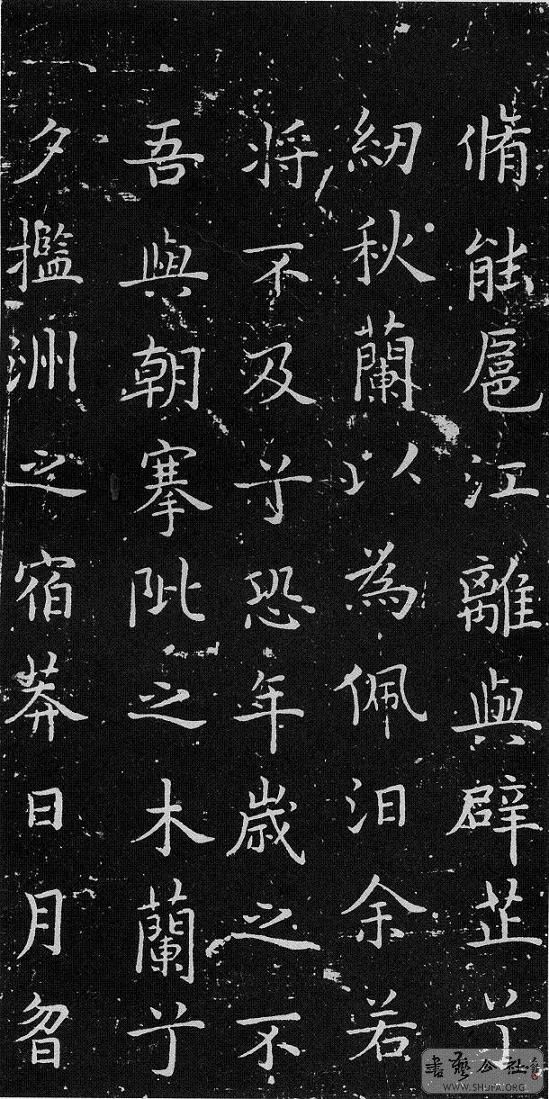 脩能扈江離與辟芷兮
紉秋蘭以為佩汩余若
将不及兮恐年歲之不
吾與朝搴阰之木蘭兮
夕㩜洲之宿莽日月曶
書藝公社
WWW.SHUFA.ORG